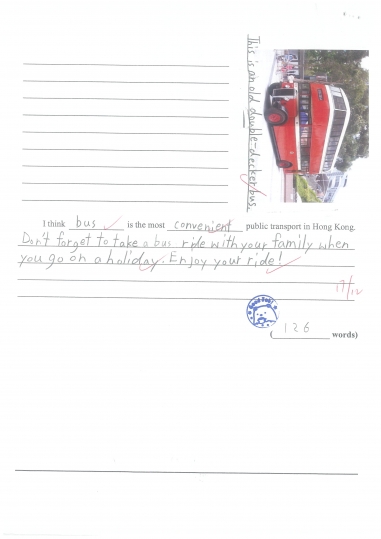 This is an old double-decker bus.
I think bus is the most convenient public transport in Hong Kong.
Don't forget to take a bus ride with your family when
you go on a holiday. Enjoy your ride!
17/12
GOOD JOB!
(126 words)